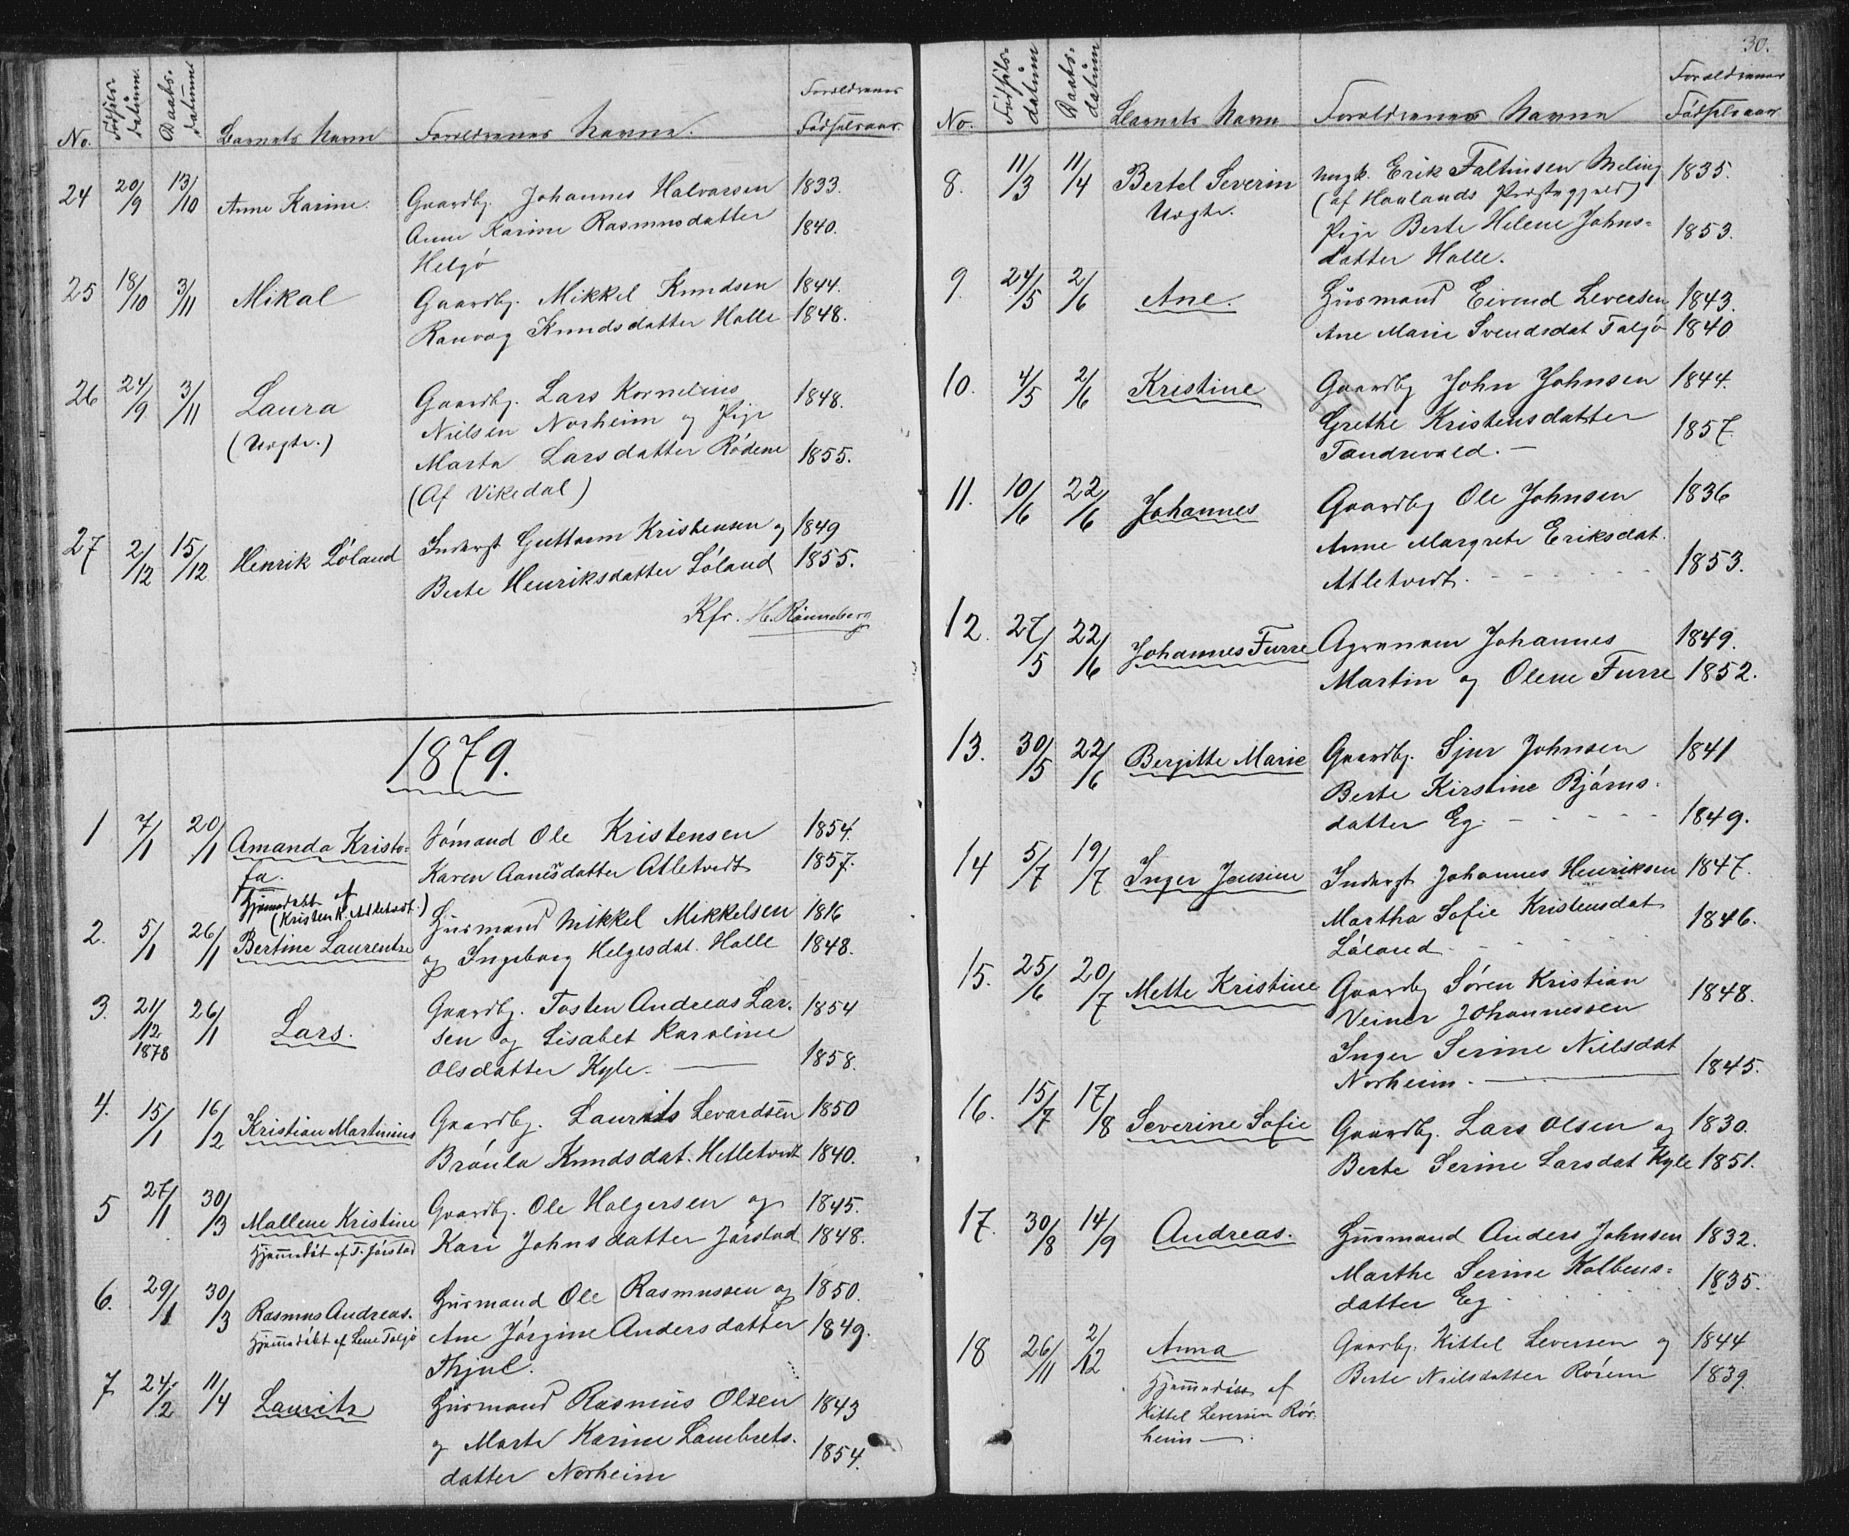 No. Fødsels-datum. Daabs-datum Barnets Navn Forældrenes Navne. Forældrenes Fødselsaar.
24 20/9 13/10 Anne Karine. Gaardbr. Johannes Halvarsen 1833.
Anne Karine Rasmusdatter 1840.
Helgø
25 18/10 3/11 Mikal Gaardbr. Mikkel Knudsen 1844.
Ranvag Knudsdatter Halle 1848.
26 24/9. 3/11 Laura Gaardbr. Lars Kornelius 1848.
(Uægte.) Nielsen Norheim og Pige
Marta Larsdatter Rødene 1855.
(Af Vikedal)
27 2/12 15/12 Henrik Løland Inderst Guttorm Kristensen og 1849
Berte Henriksdatter Løland 1855.
Kfr. H. Rønneberg
1879.
1 7/1 20/1 Amanda Kristofa. Sømand Ole Kristensen 1854.
Karen Aanesdatter Atletvedt 1857.
Hjemmedøbt af
(Kristen K. Atletvedt.)
2. 5/1 26/1 Bertine Laurentze Husmand Mikkel Mikkelsen 1816
og Ingeborg Helgesdat. Halle 1848.
3. 21/12 1878 26/1 Lars. Gaardbr. Tosten Andreas Lar- 1854
sen og Lisabet Karoline
Olsdatter Kyle. — 1858.
4. 15/1 16/2 Kristian Martinius Gaardbr. Laurits Levardsen 1850
Brønla Knudsdat. Hetletvedt 1840.
5 27/1 30/3 Mallene Kristine Gaardbr. Ole Halgersen og 1845.
Hjemmedøbt af T. Jørstad Kari Johnsdatter Jørstad 1848.
6. 29/1 30/3 Rasmus Andreas. Husmand Ole Rasmussen og 1850.
Hjemmedøbt af Lene Talgø Ane Jørgine Andersdatter 1849.
Thjul.
7 24/2 11/4 Lauritz Husmand Rasmus Olsen 1843
og Marte Karine Lambrets- 1854.
datter Norheim
30.
No. Fødsels-datum Daabs-datum Barnets Navn Forældrenes Navne Forældrenes Fødselsaar.
8. 11/3 11/4 Bertel Severin Ungk. Erik Faltinsen Meling 1835.
Uægte. (af Haalands Præstegjeld)
Pige Berte Helene Johns- 1853.
datter Halle.
9. 24/5 2/6 Ane. Husmand Eivend Leversen 1843.
Ane Marie Svendsdat Talgø 1840
10. 4/5 2/6 Kristine Gaardbr John Johnsen 1844.
Grethe Kristensdatter 1857.
Tandrevold. —
11. 10/6 22/6 Johannes Gaardbr Ole Johnsen 1836
Anne Margrete Eriksdat.
Atletvedt. 1853.
12. 27/5 22/6 Johannes Furre Agronom Johannes 1849.
Martin og Olene Furre 1852.
13. 30/5 22/6 Bergitte Marie Gaardbr. Sjur Johnsen 1841
Berte Kirstine Bjørns-
datter Eg. 1849.
14 5/7 19/7 Inger Jensine Inderst Johannes Henriksen 1847.
Martha Sofie Kristensdat 1846.
Løland
15. 25/6 20/7 Mette Kristine Gaardbr Søren Kristian 1848.
Veiner Johannessen
Inger Serine Nielsdat 1845.
Norheim. —
16. 15/7 17/8 Severine Sofie Gaardbr. Lars Olsen og 1830.
Berte Serine Larsdat Kyle 1851.
17. 30/8 14/9 Andreas. Husmand Anders Johnsen 1832.
Marthe Serine Kolbens- 1835.
datter Eg
18 26/11 2/12 Anna Gaarbr. Kittel Leversen og 1844
Hjemmedøbt af Berte Nielsdatter Rørem 1839.
Kittel Leversen Rør
heim —.